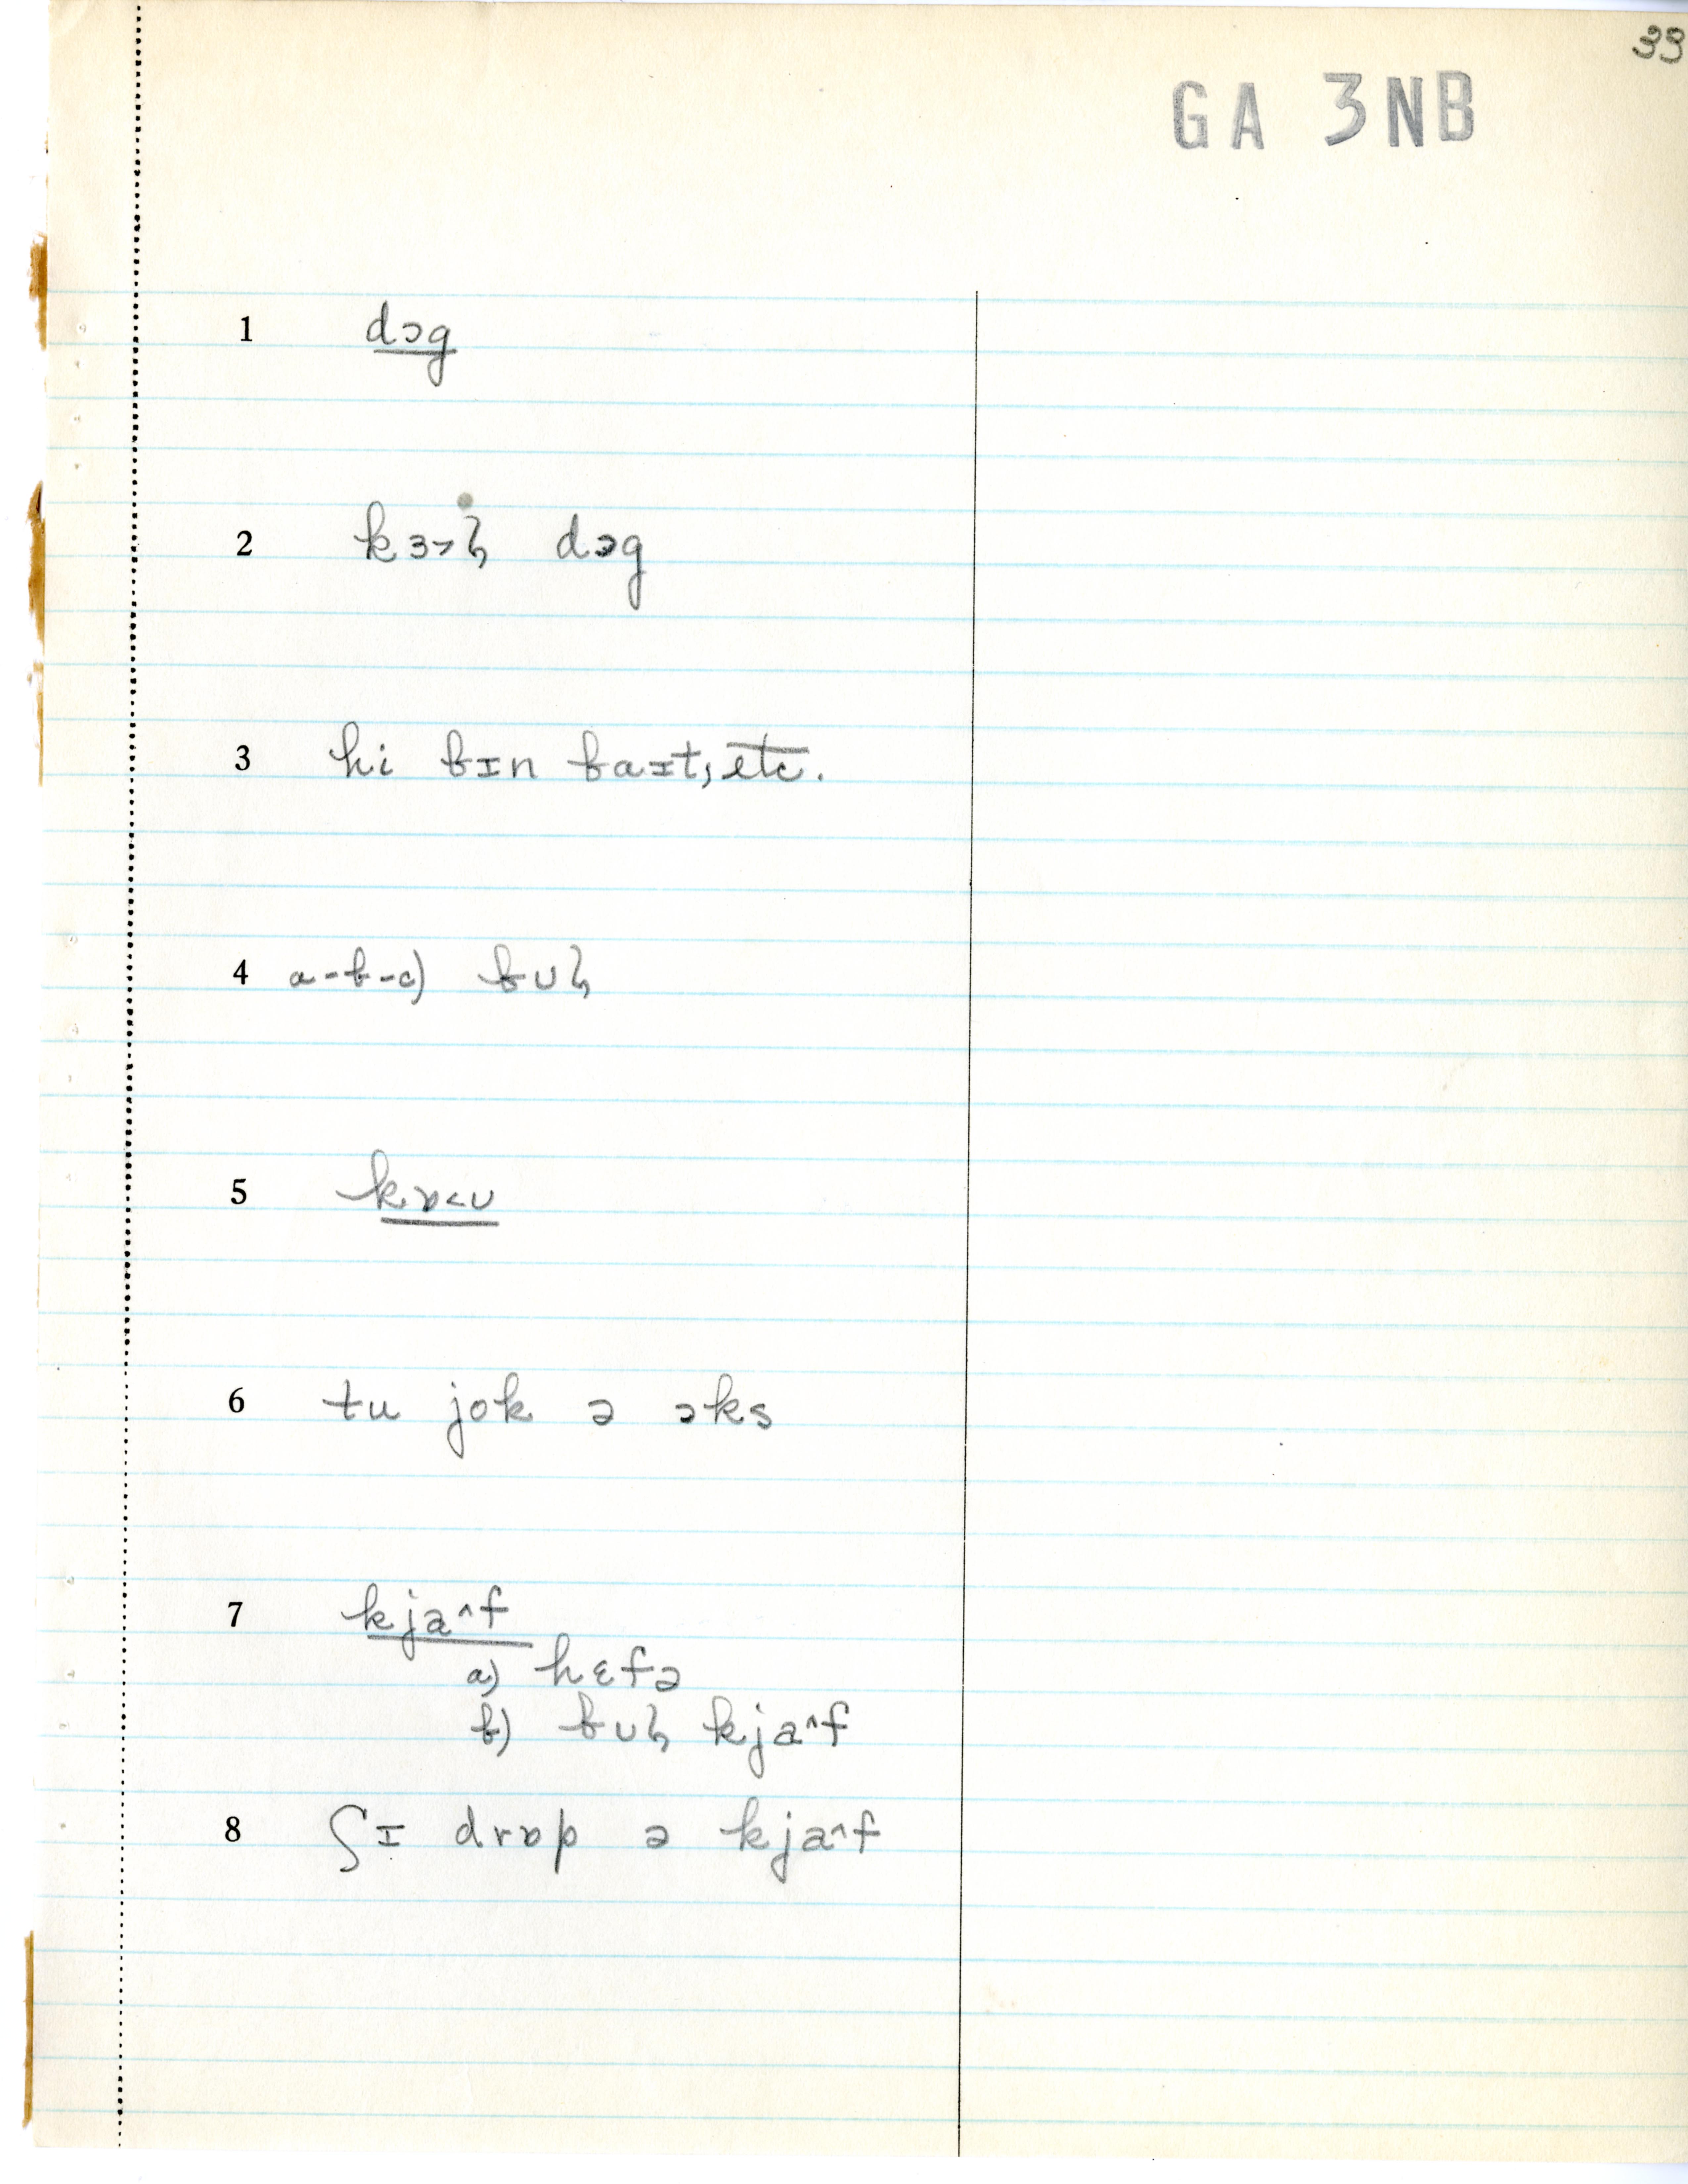 33
GA 3NB
1 dɔg
2 kɜ˃ɦ dɔg
3 hi bɪn baɪt, etc.
4 a-b-c) bʊɦ
5 kɒ˂ʊ
6 tu jok ə ɔks
7 kja^f
a) hɛfə
b) bʊɦ kja^f
8 ʃɪ drɒp ə kja^f